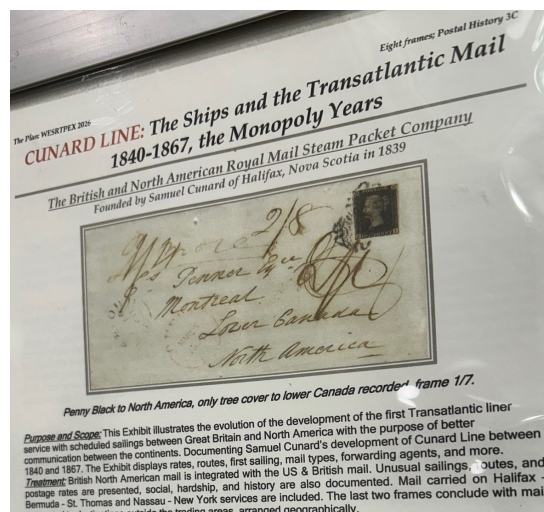 Eight frames; Postal History 3C
The Plan: WESRTPEX 2026
CUNARD LINE: The Ships and the Transatlantic Mail
1840-1867, the Monopoly Years
The British and North American Royal Mail Steam Packet Company
Founded by Samuel Cunard of Halifax, Nova Scotia in 1839
2/8
Jenner
Montreal
Lower Canada
North America
Penny Black to North America, only tree cover to lower Canada recorded, frame 1/7.
Purpose and Scope: This Exhibit illustrates the evolution of the development of the first Transatlantic liner
service with scheduled sailings between Great Britain and North America with the purpose of better
communication between the continents. Documenting Samuel Cunard's development of Cunard Line between
1840 and 1867. The Exhibit displays rates, routes, first sailing, mail types, forwarding agents, and more.
Treatment: British North American mail is integrated with the US & British mail. Unusual sailings, routes, and
postage rates are presented, social, hardship, and history are also documented. Mail carried on Halifax -
Bermuda - St. Thomas and Nassau - New York services are included. The last two frames conclude with mai
outside the trading areas, arranged geographically.